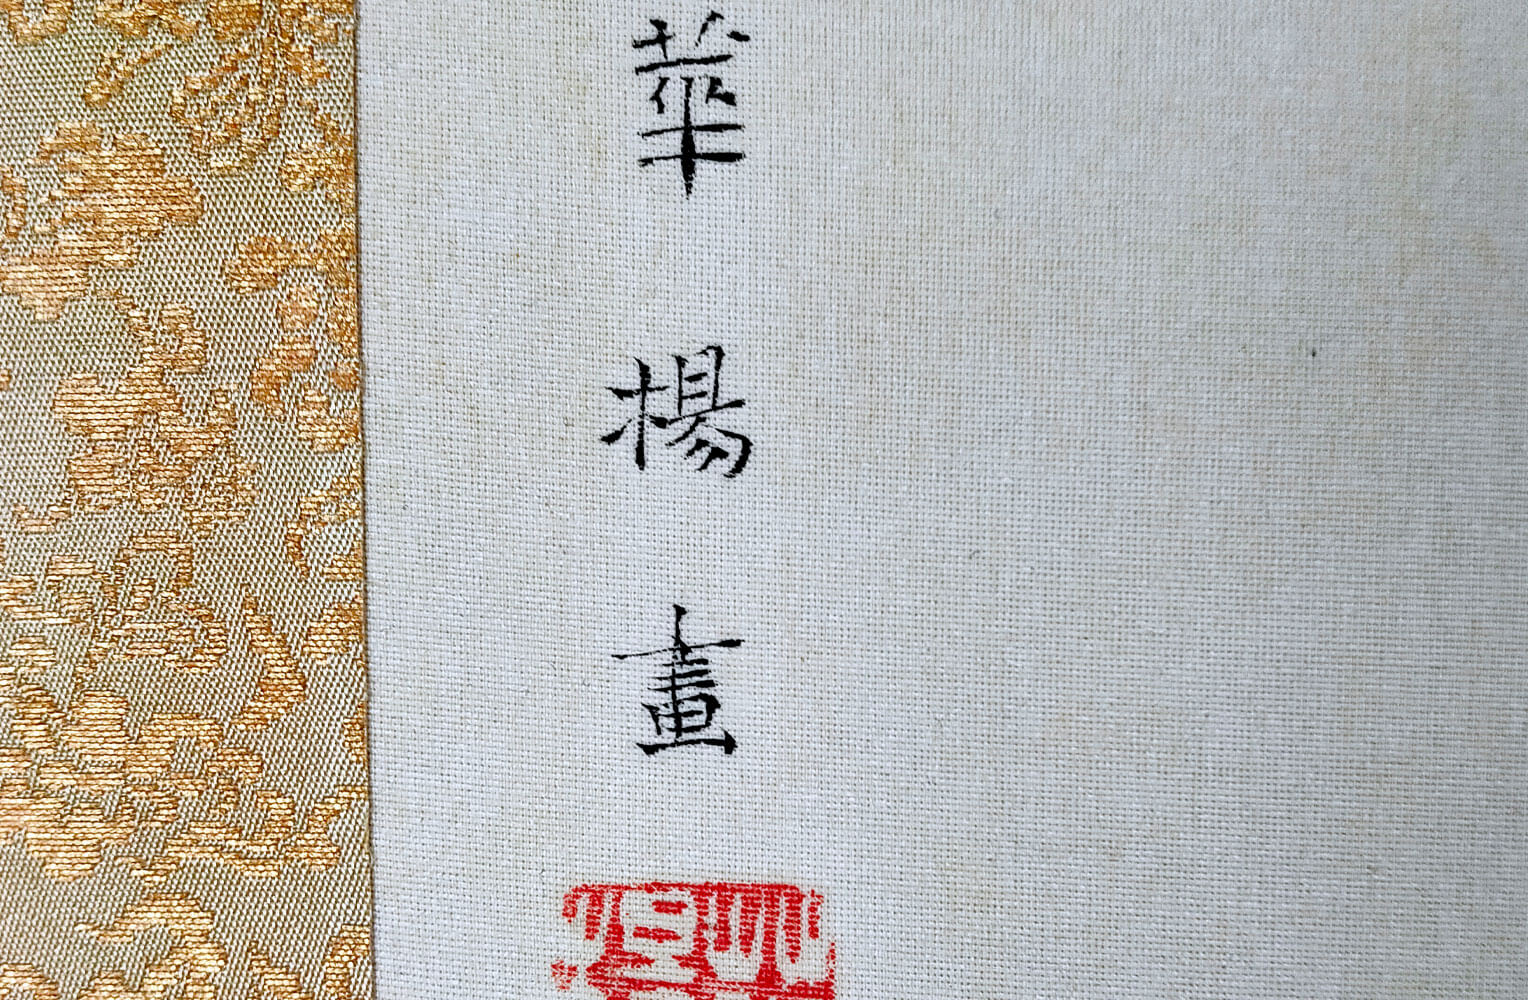 華楊畫